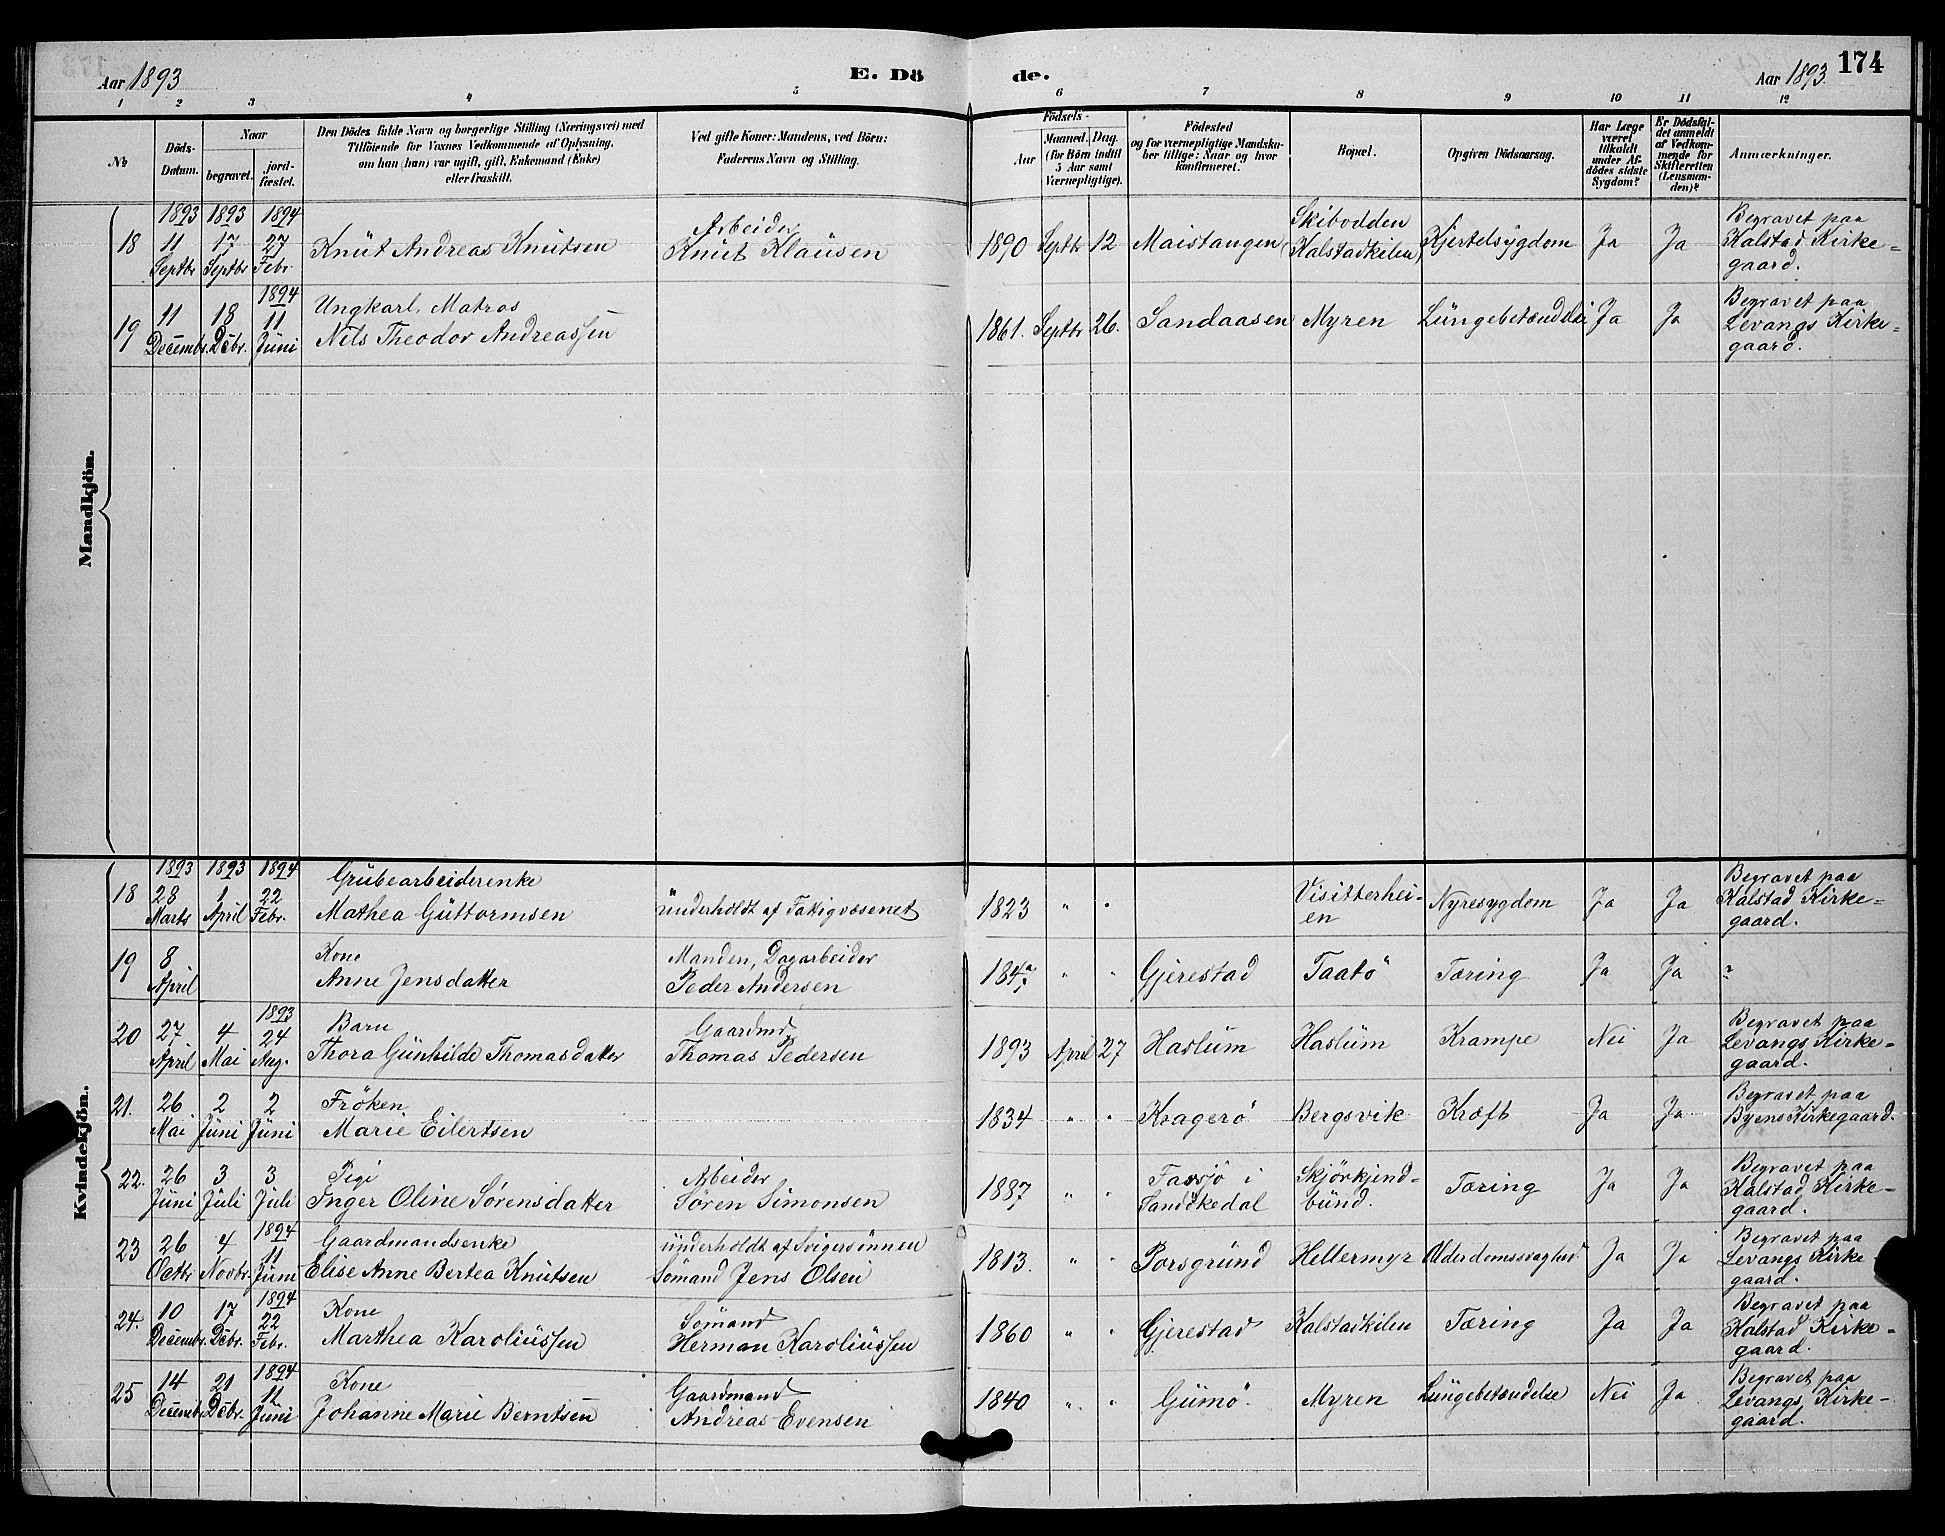 Aar 1893
E. Dö
de.
Aar 1893.
174
1 2 3 4 5 6 7 8 9 10 11 12
No
Döds-
Datum.
Naar
begravet.
jord-
fæstet.
Den Dödes fulde Navn og borgerlige Stilling (Næringsvei) med
Tilföiende for Voxnes Vedkommende af Oplysning,
om han (hun) var ugift, gift, Enkemand (Enke)
eller fraskilt.
Ved gifte Koner: Mandens, ved Börn:
Faderens Navn og Stilling.
Födsels-
Aar
Maaned. Dag.
(for Börn indtil
5 Aar samt
Værnepligtige).
Födested
og for værnepligtige Mandska-
ber tillige: Naar og hvor
konfirmeret.
Bopæl.
Opgiven Dödsaarsag.
Har Læge
været
tilkaldt
under Af-
dödes sidste
Sygdom?
Er Dödsfal-
det anmeldt
af Vedkom-
mende for
Skifteretten
(Lensman-
den)?
Anmærkninger.
Mandkjön.
1893 1893 1894
18
11 Septbr
17 Septbr
27 Febr.
Knut Andreas Knutsen
Arbeider
Knut Klausen
1890 Septbr 12
Maistangen
Skibodden
(Kalstadkilen)
Kjertelsygdom
Ja
Ja
Begravet paa
Kalstad Kirke-
gaard.
19
11 Decembr.
18 Dcbr.
1894
11 Juni
Ungkarl, Matros
Nils Theodor Andreassen
1861. Septbr 26.
Sandaasen
Myren
Lungebetændelse
Ja
Ja
Begravet paa
Levangs Kirke-
gaard.
Kvindekjön.
1893 1893 1894
18
28 Marts
1 April
22 Febr.
Grubearbeiderenke
Mathea Guttormsen
underholdt af Fattigvæsenet
1823 " "
Visitterhei-
en
Nyresygdom
Ja
Ja
Begravet paa
Kalstad Kirke-
gaard.
19
8 April
Kone
Anne Jensdatter
Manden, Dagarbeider
Peder Andersen
184? " "
Gjerestad
Taatö
Tæring
Ja
Ja
?
20
27 April
4 Mai
1893
24 Aug.
Barn
Thora Gunhilde Thomasdatter
Gaardmd.
Thomas Pedersen
1893 April 27
Haslum
Haslum
Krampe
Nei
Ja
Begravet paa
Levangs Kirke-
gaard.
21.
26 Mai
2 Juni
2 Juni
Fröken
Marie Eilertsen
1834 " "
Kragerö
Bergsvik
Kræft
Ja
Ja
Begravet paa
Byens Kirkegaard.
22.
26 Juni
3 Juli
3 Juli
Pige
Inger Oline Sörensdatter
Arbeider
Sören Simonsen
1887 " "
i
Sandökedal
Skjörkjend-
bund.
Tæring
Ja
Ja
Begravet paa
Kalstad Kirke-
gaard.
23
26 Octbr
4 Novbr.
1894
11 Juni
Gaardmandsenke
Elise Anne Bertea Knutsen
underholdt af Svigersönnen
Sömand Jens Olsen
1813. " "
Porsgrund
Hellermyr
Alderdomssvaghed
Ja
Ja
Begravet paa
Levangs Kirke
gaard.
24.
10 Decembr.
17 Dcbr.
1894
22 Febr.
Kone
Marthea Karoliussen
Sömand
Herman Karoliussen
1860 " "
Gjerestad
Kalstadkilen
Tæring
Ja
Ja
Begravet paa
Kalstad Kirke-
gaard.
25
14 Decembr
21 Dcbr.
1894
11 Juni
Kone
Johanne Marie Berntsen
Gaardmand
Andreas Evensen
1840 " "
Gumö.
Myren
Lungebetændelse
Nei
Ja
Begravet paa
Levangs Kirke-
gaard.